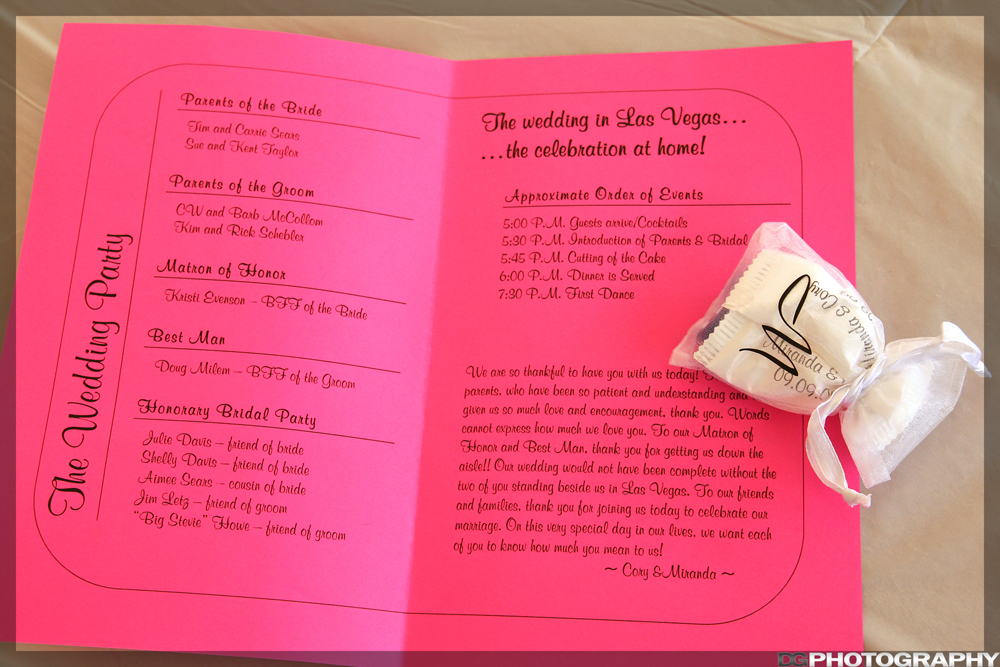 The Wedding Party
Parents of the Bride
Tim and Carrie Sears
Sue and Kent Taylor
Parents of the Groom
CW and Barb McCollom
Kim and Rick Schebler
Matron of Honor
Kristi Evenson – BFF of the Bride
Best Man
Doug Milem – BFF of the Groom
Honorary Bridal Party
Julie Davis – friend of bride
Shelly Davis – friend of bride
Aimee Sears – cousin of bride
Jim Letz – friend of groom
"Big Stevie" Howe – friend of groom
The wedding in Las Vegas...
...the celebration at home!
Approximate Order of Events
5:00 P.M. Guests arrive/Cocktails
5:30 P.M. Introduction of Parents & Bridal
5:45 P.M. Cutting of the Cake
6:00 P.M. Dinner is Served
7:30 P.M. First Dance
We are so thankful to have you with us today!
parents, who have been so patient and understanding and
given us so much love and encouragement, thank you. Words
cannot express how much we love you. To our Matron of
Honor and Best Man, thank you for getting us down the
aisle!! Our wedding would not have been complete without the
two of you standing beside us in Las Vegas. To our friends
and families, thank you for joining us today to celebrate our
marriage. On this very special day in our lives, we want each
of you to know how much you mean to us!
~ Cory & Miranda ~
Miranda & Cory
Miranda &
09.09.
DGPHOTOGRAPHY